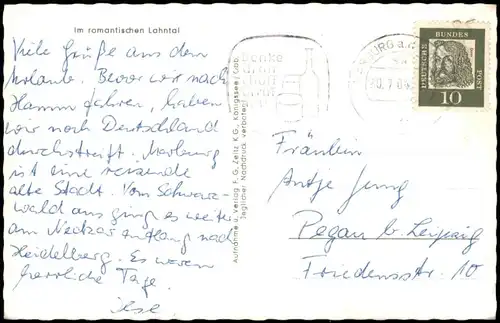 Im romantischen Lahntal
Viele Grüße aus dem
Urlaub. Bevor wir nach
Hamm fahren, haben
wir noch Deutschland
durchstreift. Marburg
ist eine reizende
alte Stadt. Vom Schwarz-
wald aus ging es weiter
am Neckar entlang nach
Heidelberg. Es waren
herrliche Tage.
Ilse
Aufnahme u. Verlag F. G. Zeitz K.G., Königssee / Obb.
Jeglicher Nachdruck verboten
Denke
daran
BURG a.
20.7.
DEUTSCHE
BUNDES
POST
10
Fräulein
Antje Jung
Pegau bei Leipzig
Friedensstr. 10